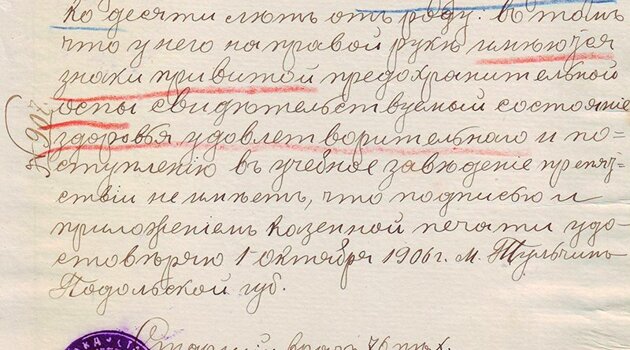 ко десяти лѣтъ отъ роду. въ томъ
что у него на правой рукѣ имѣются
знаки привитой предохранительной
оспы свидѣтельствуемый состояніе
здоровья удовлетворительнаго и по-
ступленію въ учебное заведеніе препят
ствій не имѣетъ, что подписью и
приложеніемъ казенной печати удо-
стовѣряю 1 октября 1906 г. М. Тульчинъ
Подольской губ.
Старшій врачъ